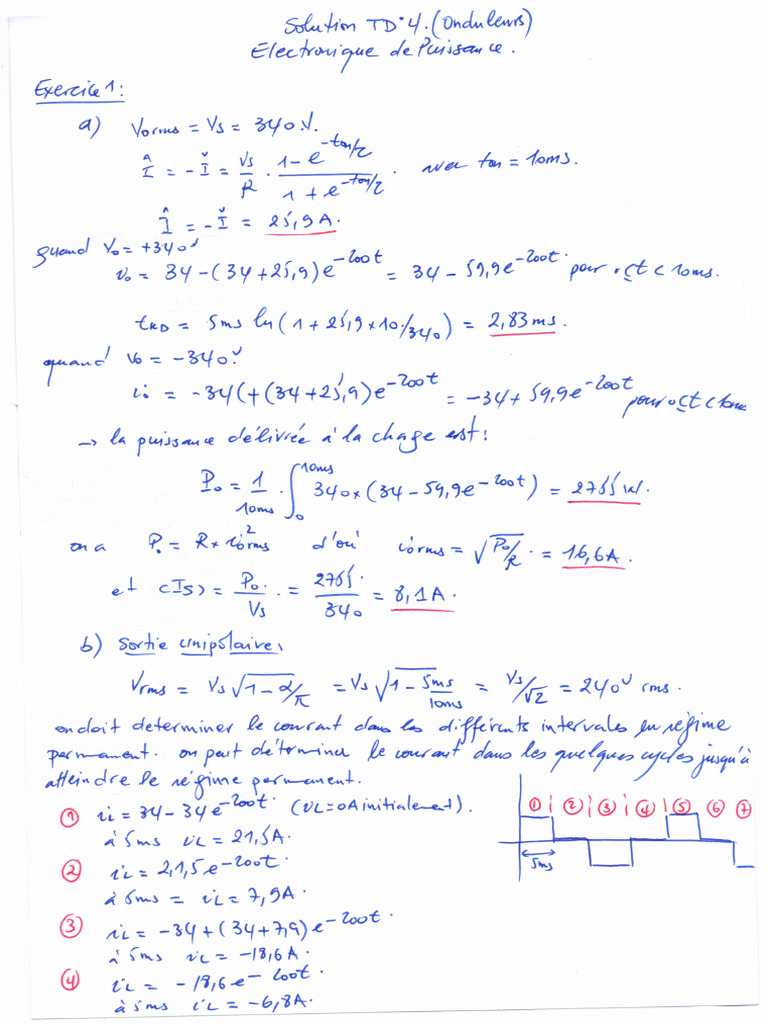 Solution TD n°4. (Onduleurs)
Electronique de Puissance.
Exercice 1:
a) Vorms = Vs = 340V.
Î = -Ǐ = Vs/R . (1 - e^-ton/τ)/(1 + e^-ton/τ) . avec ton = 10ms.
Î = -Ǐ = 25,9A.
quand Vo = +340V
io = 34 - (34 + 25,9)e^-200t = 34 - 59,9e^-200t. pour 0 ≤ t < 10ms.
tKD = 5ms ln(1 + 25,9 × 10/340) = 2,83ms.
quand Vo = -340V.
io = -34 (+(34 + 25,9)e^-200t = -34 + 59,9e^-200t pour 0 ≤ t < 10ms
→ la puissance délivrée à la chage est:
Po = 1/10ms . ∫₀^10ms 340 × (34 - 59,9e^-200t) = 2755W.
on a Po = R × io²rms d'où iorms = √Po/R = 16,6A.
et <Is> = Po/Vs = 2755/340 = 8,1A.
b) Sortie unipolaire,
Vrms = Vs√1 - α/π = Vs√1 - 5ms/10ms = Vs/√2 = 240V rms.
on doit determiner le courant dans les différents intervales en régime
permanent. on peut déterminer le courant dans les quelques cycles jusqu'à
atteindre le régime permanent.
① ② ③ ④ ⑤ ⑥ ⑦
5ms
① iL = 34 - 34e^-200t. (iL = 0A initialement).
à 5ms iL = 21,5A.
② iL = 21,5e^-200t.
à 5ms = iL = 7,9A
③ iL = -34 + (34 + 7,9)e^-200t.
à 5ms iL = -18,6A.
④ iL = -18,6e^-200t.
à 5ms iL = -6,8A.